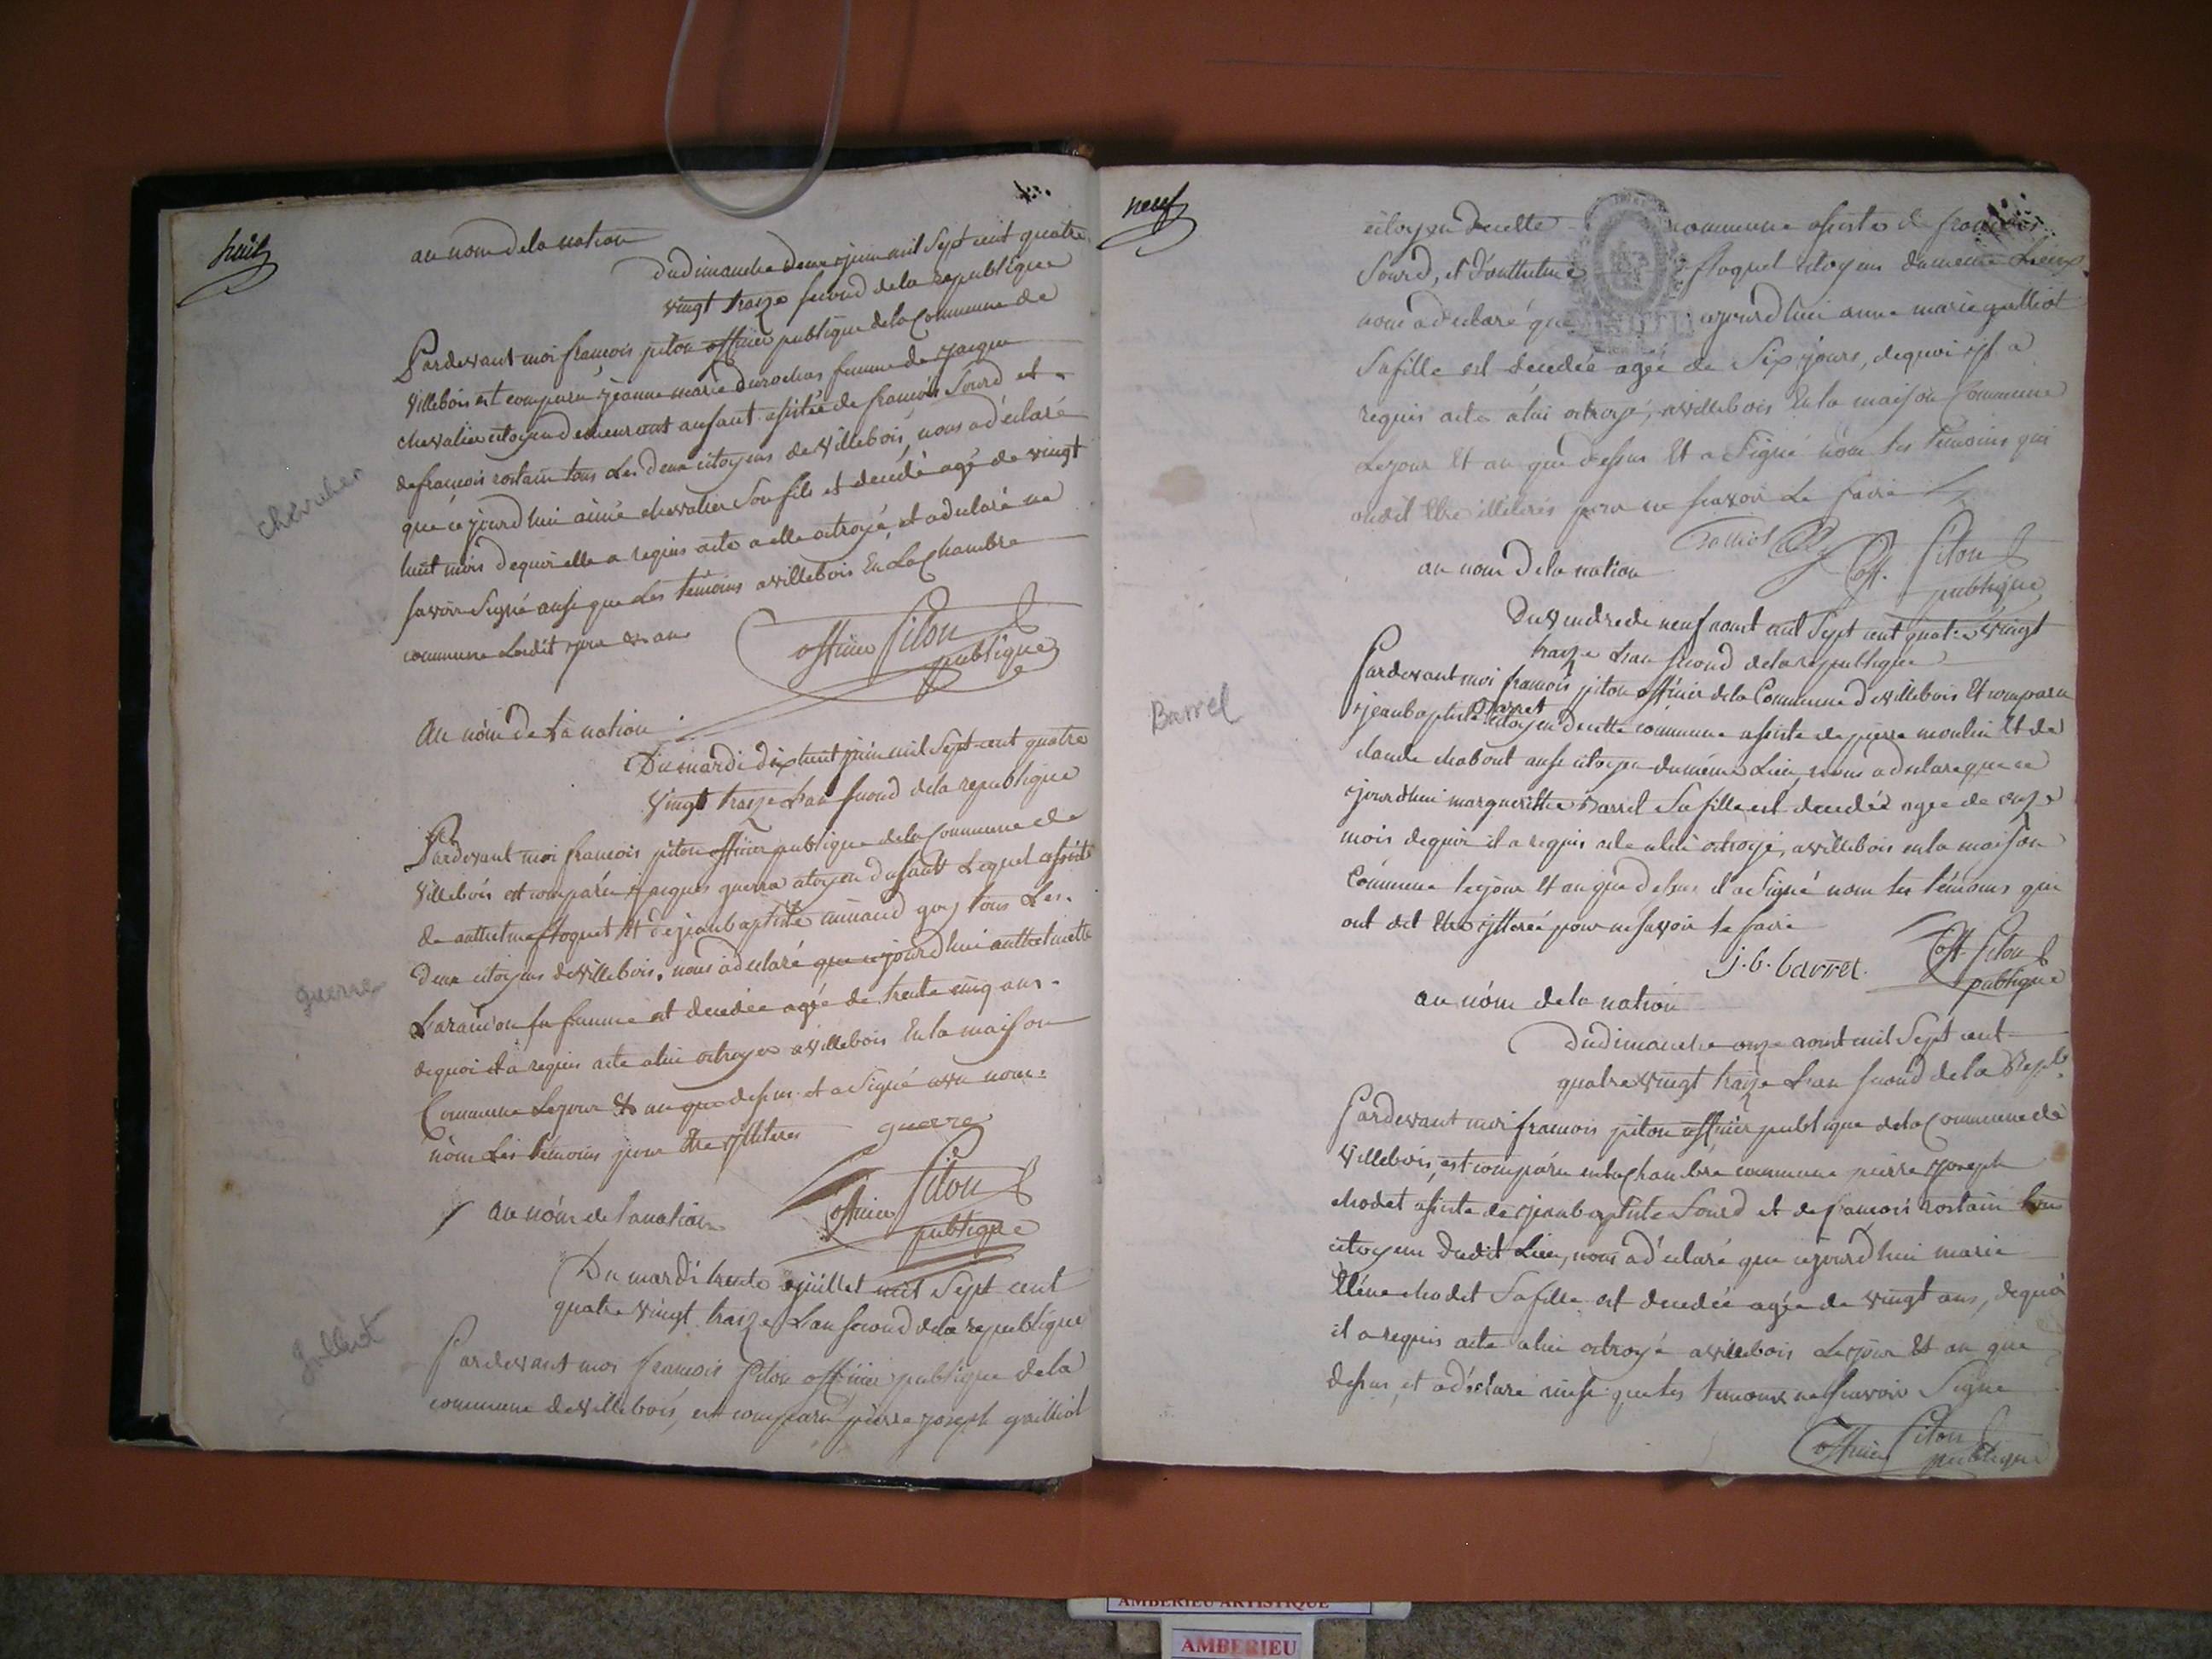 huit
au nom de la nation
Du dimanche deux juin mil sept cent quatre
vingt traize second de la republique
Pardevant moi françois piton officier publique de la Commune de
villebois est comparu jeanne marie durochas femme de jacque
chevalier citoyen demeurant assistée de francois Sourd et
de francois rostain tous Les deux citoyens de villebois, nous a déclaré
que ce jourd'hui aimé chevalier Son fils est decedé agé de vingt
huit mois dequoi elle a requis acte a elle octroyé, et a declaré ne
savoir Signé ansi que Les temoins a villebois En La Chambre
commune Ledit jour et an
officier Piton publique
chevalier
Au nom de la nation
Du mardi dix huit juin mil Sept cent quatre
vingt traize L'an second de la republique
Pardevant moi francois piton officier publique de la Commune de
villebois est comparu jacques guerre citoyen Lequel assisté
de anthelme floquet Et de jean baptiste guy tous Les
deux citoyens de villebois, nous a declaré que cejourd'hui anthelmette
Larancon sa femme est decedée agée de trente cinq ans
dequoi il a requis acte a lui octroyer a villebois En la maison
Commune Le jour Et an que dessus et a Signé avec nous
non Les temoins pour Etre illiteres
guerre
officier Piton publique
guerre
au nom de la nation
Du mardi trente juillet mil Sept cent
quatre vingt traize L'an second de la republique
Pardevant moi francois Piton officier publique de la
commune de villebois, est comparu pierre joseph gailliot
Julliot
neuf
citoyen de cette commune assisté de francois
Sourd, et d'anthelme floquet citoyens du meme Lieux
nous a declaré que aujourd'hui anne marie galliot
Sa fille est decedée agée de Six jours, dequoi il a
requis acte a lui octroyé, a villebois En la maison Commune
Le jour Et an que dessus Et a Signé non les temoins qui
ont dit Etre illiteres pour ne scavoir Le faire
Off. Piton publique
au nom de la nation
Du vendredi neuf aout mil Sept cent quatre vingt
traize L'an second de la republique
Pardevant moi francois piton officier de la Commune de villebois Est comparu
jean baptiste barret citoyen de cette commune assisté de pierre moulin Et de
claude chabout ansi citoyen du même Lieu, nous a declaré que ce
jourd'hui margueritte Barrel Sa fille est decedée agée de onze
mois dequoi il a requis acte a lui octroyé, a villebois en la maison
Commune le jour Et an que dessus il a Signé non les témoins qui
ont dit Etre illiteré pour ne savoir le faire
j. b. barret.
Off. Piton publique
Barrel
au nóm de la nation
Du dimanche onze aout mil Sept cent
quatre vingt traize L'an second de la Repl.
Pardevant moi francois piton officier publique de la Commune de
villebois, est comparu en la Chambre commune pierre joseph
chodet assisté de jean baptiste Sourd et de francois rostain tous
citoyens dudit Lieu, nous a déclaré que cejourd'hui marie
Eléne chodet Sa fille est decedée agée de vingt ans, dequoi
il a requis acte a lui octroyé a villebois Le jour Et an que
dessus, et a déclaré ainsi que les temoins ne scavoir Signe
officier Piton publique
AMBERIEU ARTISTIQUE
AMBERIEU